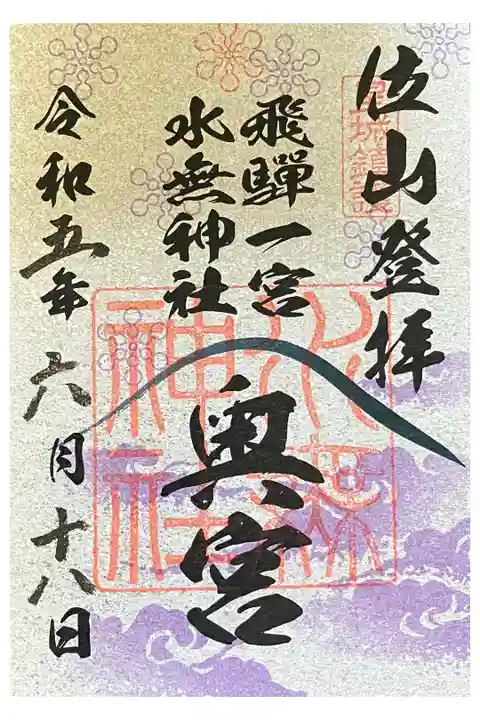 位山登拝
飛騨一宮
水無神社
奥宮
令和五年 六月十八日
水無
神社